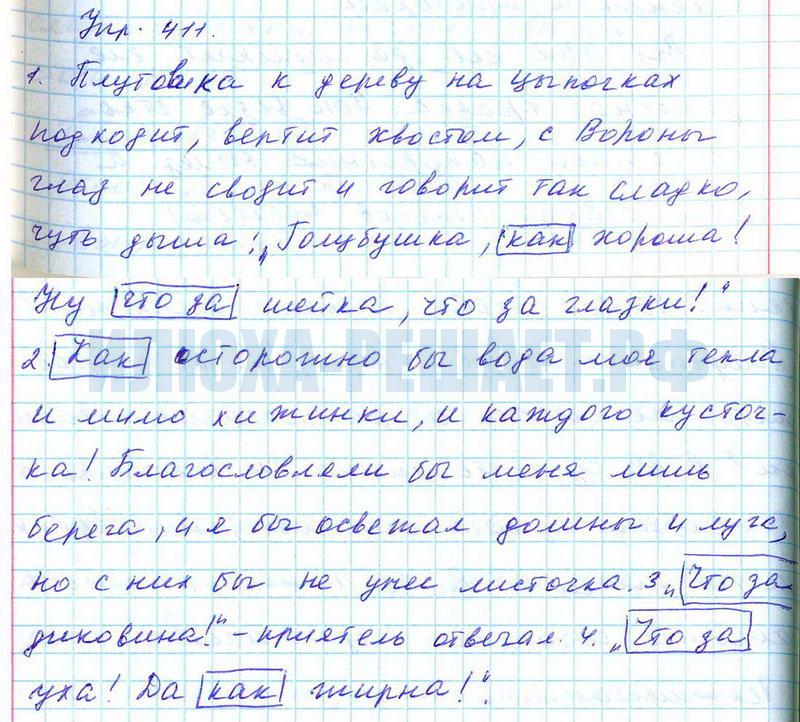 Упр. 411.
1. Плутовка к дереву на цыпочках
подходит, вертит хвостом, с Вороны
глаз не сводит и говорит так сладко,
чуть дыша: „Голубушка, как хороша!
Ну что за шейка, что за глазки!"
2 Как осторожно бы вода моя текла
и мимо хижинки, и каждого кусточ-
ка! Благословляли бы меня лишь
берега, и я бы освежал долины и луга,
но с них бы не унес листочка. 3 „Что за
диковина!" - приятель отвечал. 4. „Что за
уха! Да как жирна!".
ИЛЮХА-РЕШАЕТ.РФ